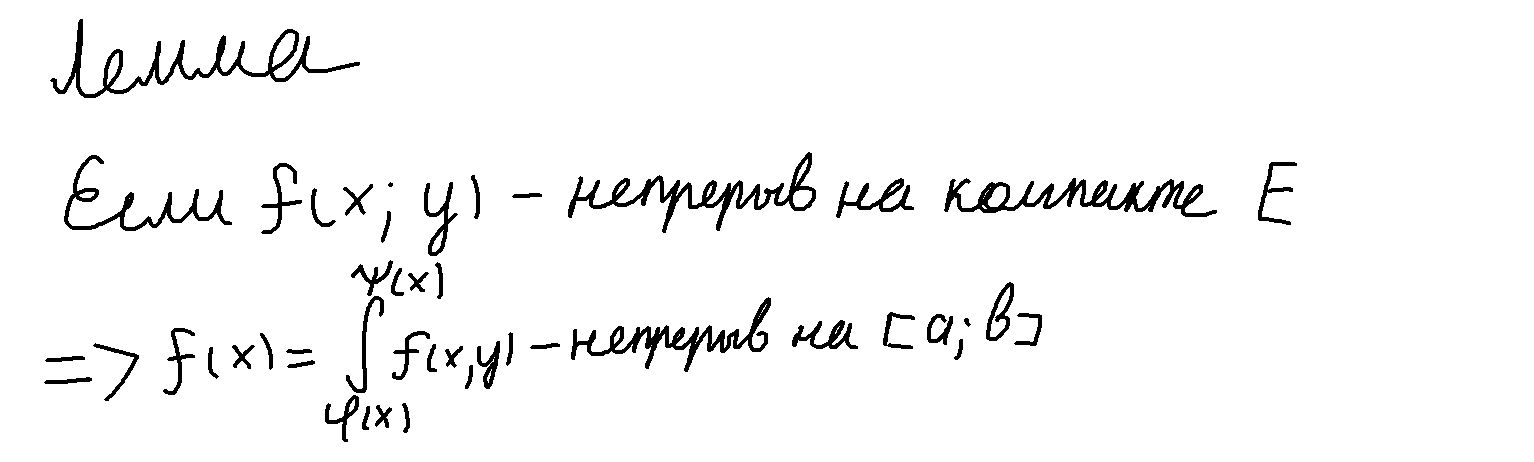 Лемма
Если f(x; y) – непрерыв на компакте E
ψ(x)
=> f(x) = ∫ f(x,y) – непрерыв на [a; b]
φ(x)